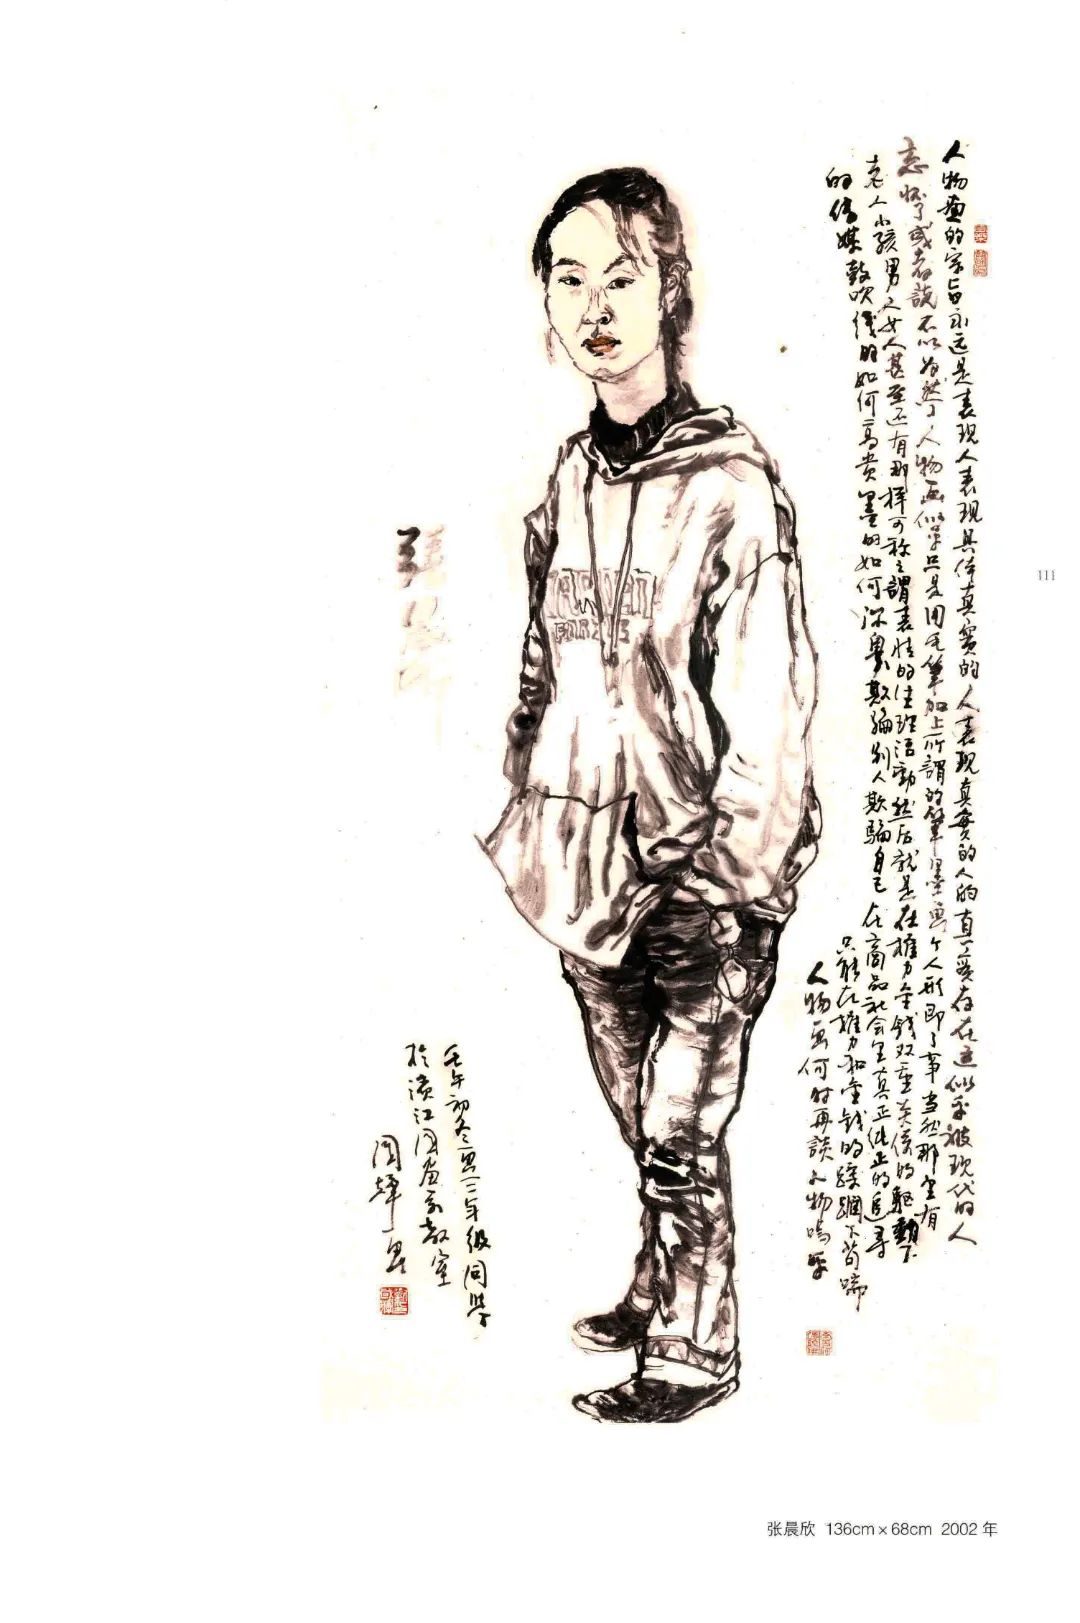 人物画的宗旨永远是表现人表现具体真实的人表现真实的人的真实存在这似乎被现代的人
忘怀了或者说不以为然了人物画似乎只是用毛笔加上所謂的筆墨画个人形即了事当然那里有
老人小孩男人女人甚至还有那样可称之謂表情的生理活動然后就是在権力金钱双重关係的駆動下
的传媒鼓吹线的如何高贵墨的如何深奥欺骗别人欺骗自己在商品社会里真正纯正的追寻
只能在権力和金钱的蹂躏下苟喘
人物画何时再談人物嗚乎
张晨欣
壬午初冬画二年级同学
於浜江国画系教室
国辉画
111
张晨欣 136cm×68cm 2002 年